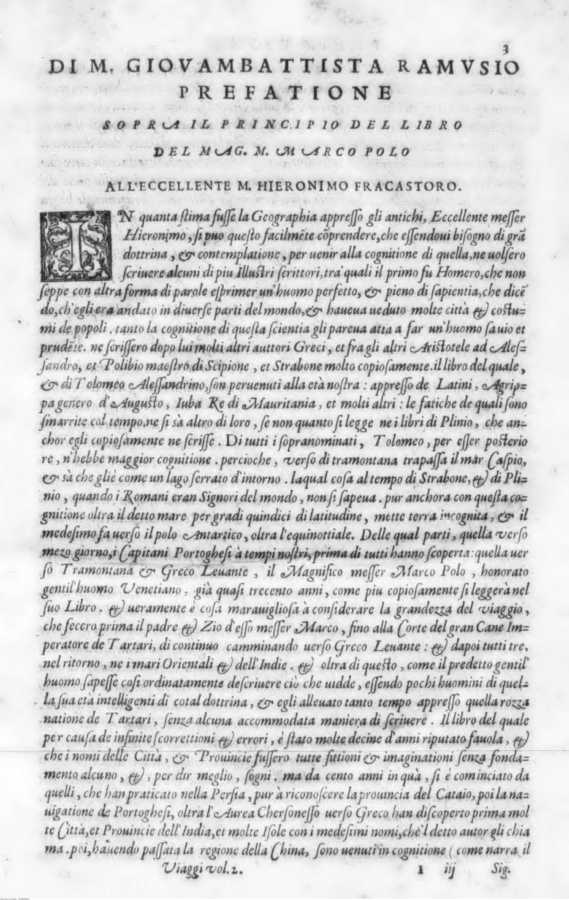 3
DI M. GIOVAMBATTISTA RAMVSIO
PREFATIONE
SOPRA IL PRINCIPIO DEL LIBRO
DEL MAG. M. MARCO POLO
ALL'ECCELLENTE M. HIERONIMO FRACASTORO.
IN quanta stima fusse la Geographia appresso gli antichi, Eccellente messer
Hieronimo, si può questo facilmẽte cõprendere, che essendoui bisogno di grã
dottrina, & contemplatione, per uenir alla cognitione di quella, ne uolsero
scriuere alcuni di piu illustri scrittori, tra quali il primo fu Homero, che non
seppe con altra forma di parole esprimer un'huomo perfetto, & pieno di sapientia, che dicẽ
do, ch'egli era andato in diuerse parti del mondo, & haueua ueduto molte città & costu-
mi de popoli. tanto la cognitione di questa scientia gli pareua atta a far un'huomo sauio et
prudẽte. ne scrissero dopo lui molti altri auttori Greci, et fra gli altri Aristotele ad Ales-
sandro, et Polibio maestro di Scipione, et Strabone molto copiosamente. il libro del quale,
& di Tolomeo Alessandrino, son peruenuti alla età nostra: appresso de Latini, Agrip-
pa genero d'Augusto, Iuba Re di Mauritania, et molti altri: le fatiche de quali sono
smarrite col tempo, ne si sà altro di loro, se non quanto si legge ne i libri di Plinio, che an-
chor egli copiosamente ne scrisse. Di tutti i sopranominati, Tolomeo, per esser posterio
re, n'hebbe maggior cognitione. percioche, verso di tramontana trapassa il mar Caspio,
& sà che gliè come un lago serrato d'intorno. laqual cosa al tempo di Strabone, & di Pli-
nio, quando i Romani eran Signori del mondo, non si sapeua. pur anchora con questa co-
gnitione oltra il detto mare per gradi quindici di latitudine, mette terra incognita, & il
medesimo fa uerso il polo Antartico, oltra l'equinottiale. Delle qual parti, quella verso
mezo giorno, i Capitani Portoghesi à tempi nostri, prima di tutti hanno scoperta: quella uer
so Tramontana & Greco Leuante, il Magnifico messer Marco Polo, honorato
gentil'huomo Venetiano, già quasi trecento anni, come piu copiosamente si leggerà nel
suo Libro. & ueramente è cosa marauigliosa à considerare la grandezza del viaggio,
che fecero prima il padre & Zio d'esso messer Marco, fino alla Corte del gran Cane Im-
peratore de Tartari, di continuo camminando uerso Greco Leuante: & dapoi tutti tre,
nel ritorno, ne i mari Orientali & dell'Indie. & oltra di questo, come il predetto gentil'
huomo sapesse cosi ordinatamente descriuere ciò che uidde, essendo pochi huomini di quel-
la sua età intelligenti di cotal dottrina, & egli alleuato tanto tempo appresso quella rozza
natione de Tartari, senza alcuna accommodata maniera di scriuere. Il libro del quale
per causa de infinite scorrettioni & errori, è stato molte decine d'anni riputato fauola, &
che i nomi delle Città, & Prouincie fussero tutte fittioni & imaginationi senza fonda-
mento alcuno, &, per dir meglio, sogni. ma da cento anni in quà, si è cominciato da
quelli, che han praticato nella Persia, pur à riconoscere la prouincia del Cataio, poi la na-
uigatione de Portoghesi, oltra l'Aurea Chersonesso uerso Greco han discoperto prima mol
te Città, et Prouincie dell'India, et molte Isole con i medesimi nomi, che'l detto autor gli chia
ma. poi, hauendo passata la regione della China, sono uenuti in cognitione (come narra il
Viaggi vol. 2. I iij Sig.